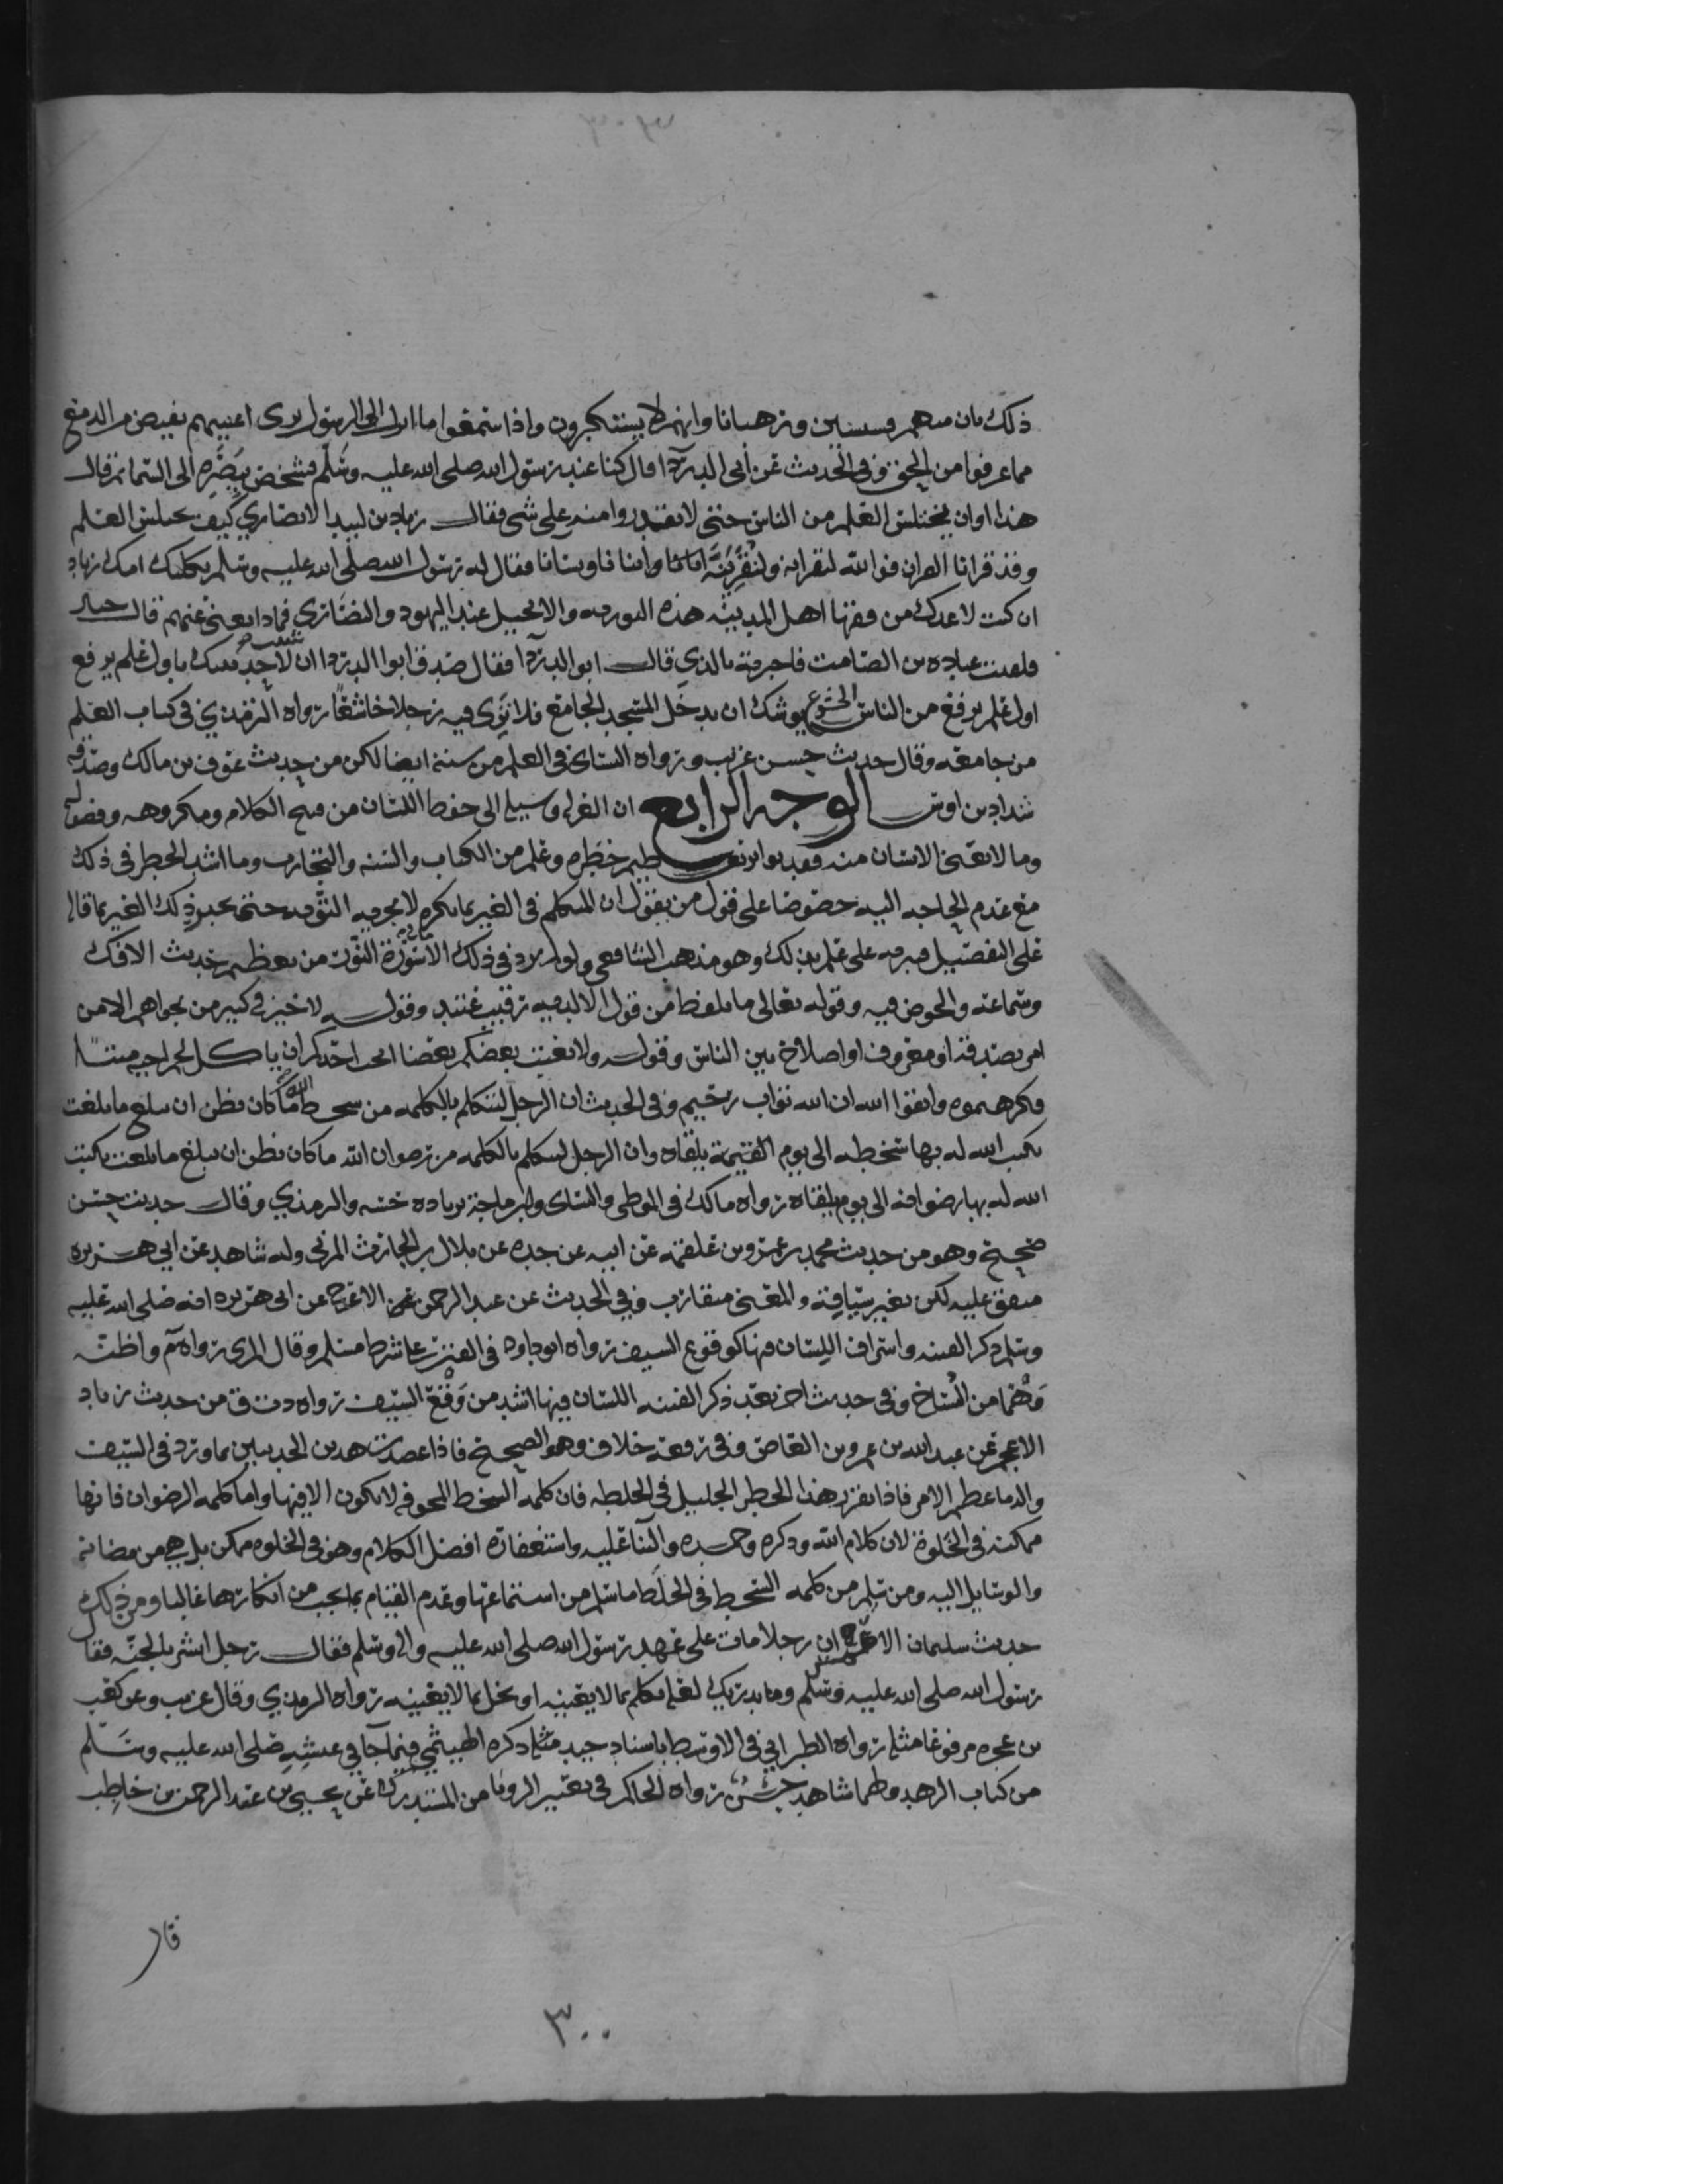 ٣٠٣
ذلك بان منهم قسيسين ورهبانا وانهم لا يستكبرون واذا سمعوا ما انزل الى الرسول ترى اعينهم تفيض من الدمع
مما عرفوا من الحق وفي الحديث عن ابي الدردا قال كنا عند رسول الله صلى الله عليه وسلم فشخص ببصره الى السما ثم قال
هذا اوان يختلس العلم من الناس حتى لا يقدروا منه على شي فقال زياد بن لبيد الانصاري كيف يختلس العلم
وقد قرانا القران فوالله لنقرانه ولنقرينه ابنانا ونسانا فقال له رسول الله صلى الله عليه وسلم ثكلتك امك زياد
ان كنت لاعدك من فقها اهل المدينه هذه التوريه والانجيل عند اليهود والنصارى فماذا يغني عنهم قال جبير
فلقيت عباده بن الصامت فاخبرته بالذي قال ابو الدردا فقال صدق ابو الدردا ان شيت لاحدثنك باول علم يرفع
اول علم يرفع من الناس الخشوع يوشك ان يدخل المسجد الجامع فلا ترى فيه رجلا خاشعا رواه الترمذي في كتاب العلم
من جامعه وقال حديث حسن غريب ورواه النساي في العلم من سننه ايضا لكن من حديث عوف بن مالك وصدقه
شداد بن اوس الوجه الرابع ان العزله وسيله الى حفظ اللسان من قبيح الكلام ومكروهه وفضوله
وما لا يعني الانسان منه فقد تواتر عظيم خطره وعلم من الكتاب والسنه والتجارب وما اشد الخطر في ذلك
مع عدم الحاجه اليه خصوصا على قول من يقول ان المتكلم في الغير بما يكره لا تجزيه التوبه حتى يخبر ذلك الغير بما قال
على التفصيل فيبريه على علم بذلك وهو مذهب الشافعي ولو لم يرد في ذلك الا ما في سورة النور من تعظيم حديث الافك
وسماعه والخوض فيه وقوله تعالى ما يلفظ من قول الا لديه رقيب عتيد وقوله لا خير في كثير من نجواهم الا من
امر بصدقة او معروف او اصلاح بين الناس وقوله ولا يغتب بعضكم بعضا ايحب احدكم ان ياكل لحم اخيه ميتا
فكرهتموه واتقوا الله ان الله تواب رحيم وفي الحديث ان الرجل ليتكلم بالكلمه من سخط الله ما كان يظن ان تبلغ ما بلغت
يكتب الله له بها سخطه الى يوم القيمة يلقاه وان الرجل ليتكلم بالكلمه من رضوان الله ما كان يظن ان تبلغ ما بلغت يكتب
الله له بها رضوانه الى يوم يلقاه رواه مالك في الموطى والنساي وابن ماجة والترمذي وقال حديث حسن
صحيح وهو من حديث محمد بن عمرو بن علقمه عن ابيه عن جده عن بلال بن الحارث المزني وله شاهد عن ابي هريره
متفق عليه لكن بغير سياقه والمعنى متقارب وفي الحديث عن عبد الرحمن الاعرج عن ابي هريره انه صلى الله عليه
وسلم ذكر الفتنه واشراف اللسان فيها كوقوع السيف رواه ابو داود في الفتن على شرط مسلم وقال المزي رواه م واظنه
وهما من النساخ وفي حديث اخر بعد ذكر الفتنه اللسان فيها اشد من وقع السيف رواه د ت ق من حديث زياد
الاعجم عن عبد الله بن عمرو بن العاص وفي رفعه خلاف وهو الصحيح فاذا عضدت هذين الحديثين بما ورد في السيف
والدما عظم الامر فاذا تقرر هذا الخطر الجليل في الخلطه فان كلمه السخط المخوفه لا تكون الا فيها واما كلمه الرضوان فانها
ممكنه في الخلوة لان كلام الله وذكره وحمده والثنا عليه واستغفاره افضل الكلام وهو في الخلوه ممكن بل هي من مضانه
والوسايل اليه ومن سلم من كلمه السخط في الخلطه ما سلم من استماعها وعدم القيام بما يجب من انكارها غالبا ومن ذلك
حديث سليمان الاعمش ان رجلا مات على عهد رسول الله صلى الله عليه واله وسلم فقال رجل ابشر بالجنه فقال
رسول الله صلى الله عليه وسلم وما يدريك لعله تكلم بما لا يعنيه او بخل بما لا يغنيه رواه الترمذي وقال غريب وعن كعب
بن عجره مرفوعا مثله رواه الطبراني في الاوسط باسناد جيد مثله ذكره الهيثمي فيما جا في عيشه صلى الله عليه وسلم
من كتاب الزهد ولهما شاهد حسن رواه الحاكم في تعبير الرويا من المستدرك عن يحيى بن عبد الرحمن بن حاطب
قال
٣٠٠